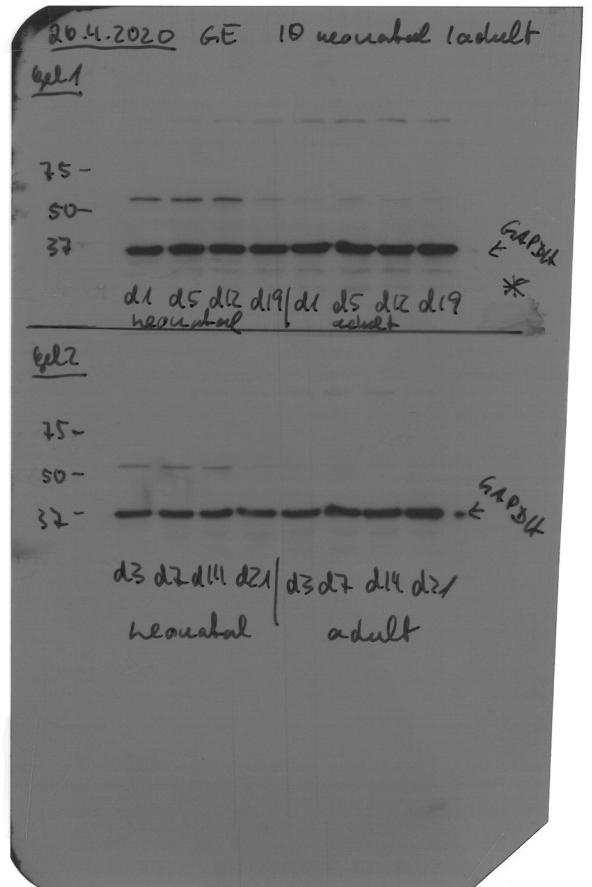 26.4.2020 GE 10 neonatal / adult
Gel 1
75 -
50 -
37
GAPDH
*
d1 d5 d12 d19 / d1 d5 d12 d19
neonatal adult
Gel 2
75 -
50 -
37 -
GAPDH
d3 d7 d14 d21 / d3 d7 d14 d21
neonatal adult